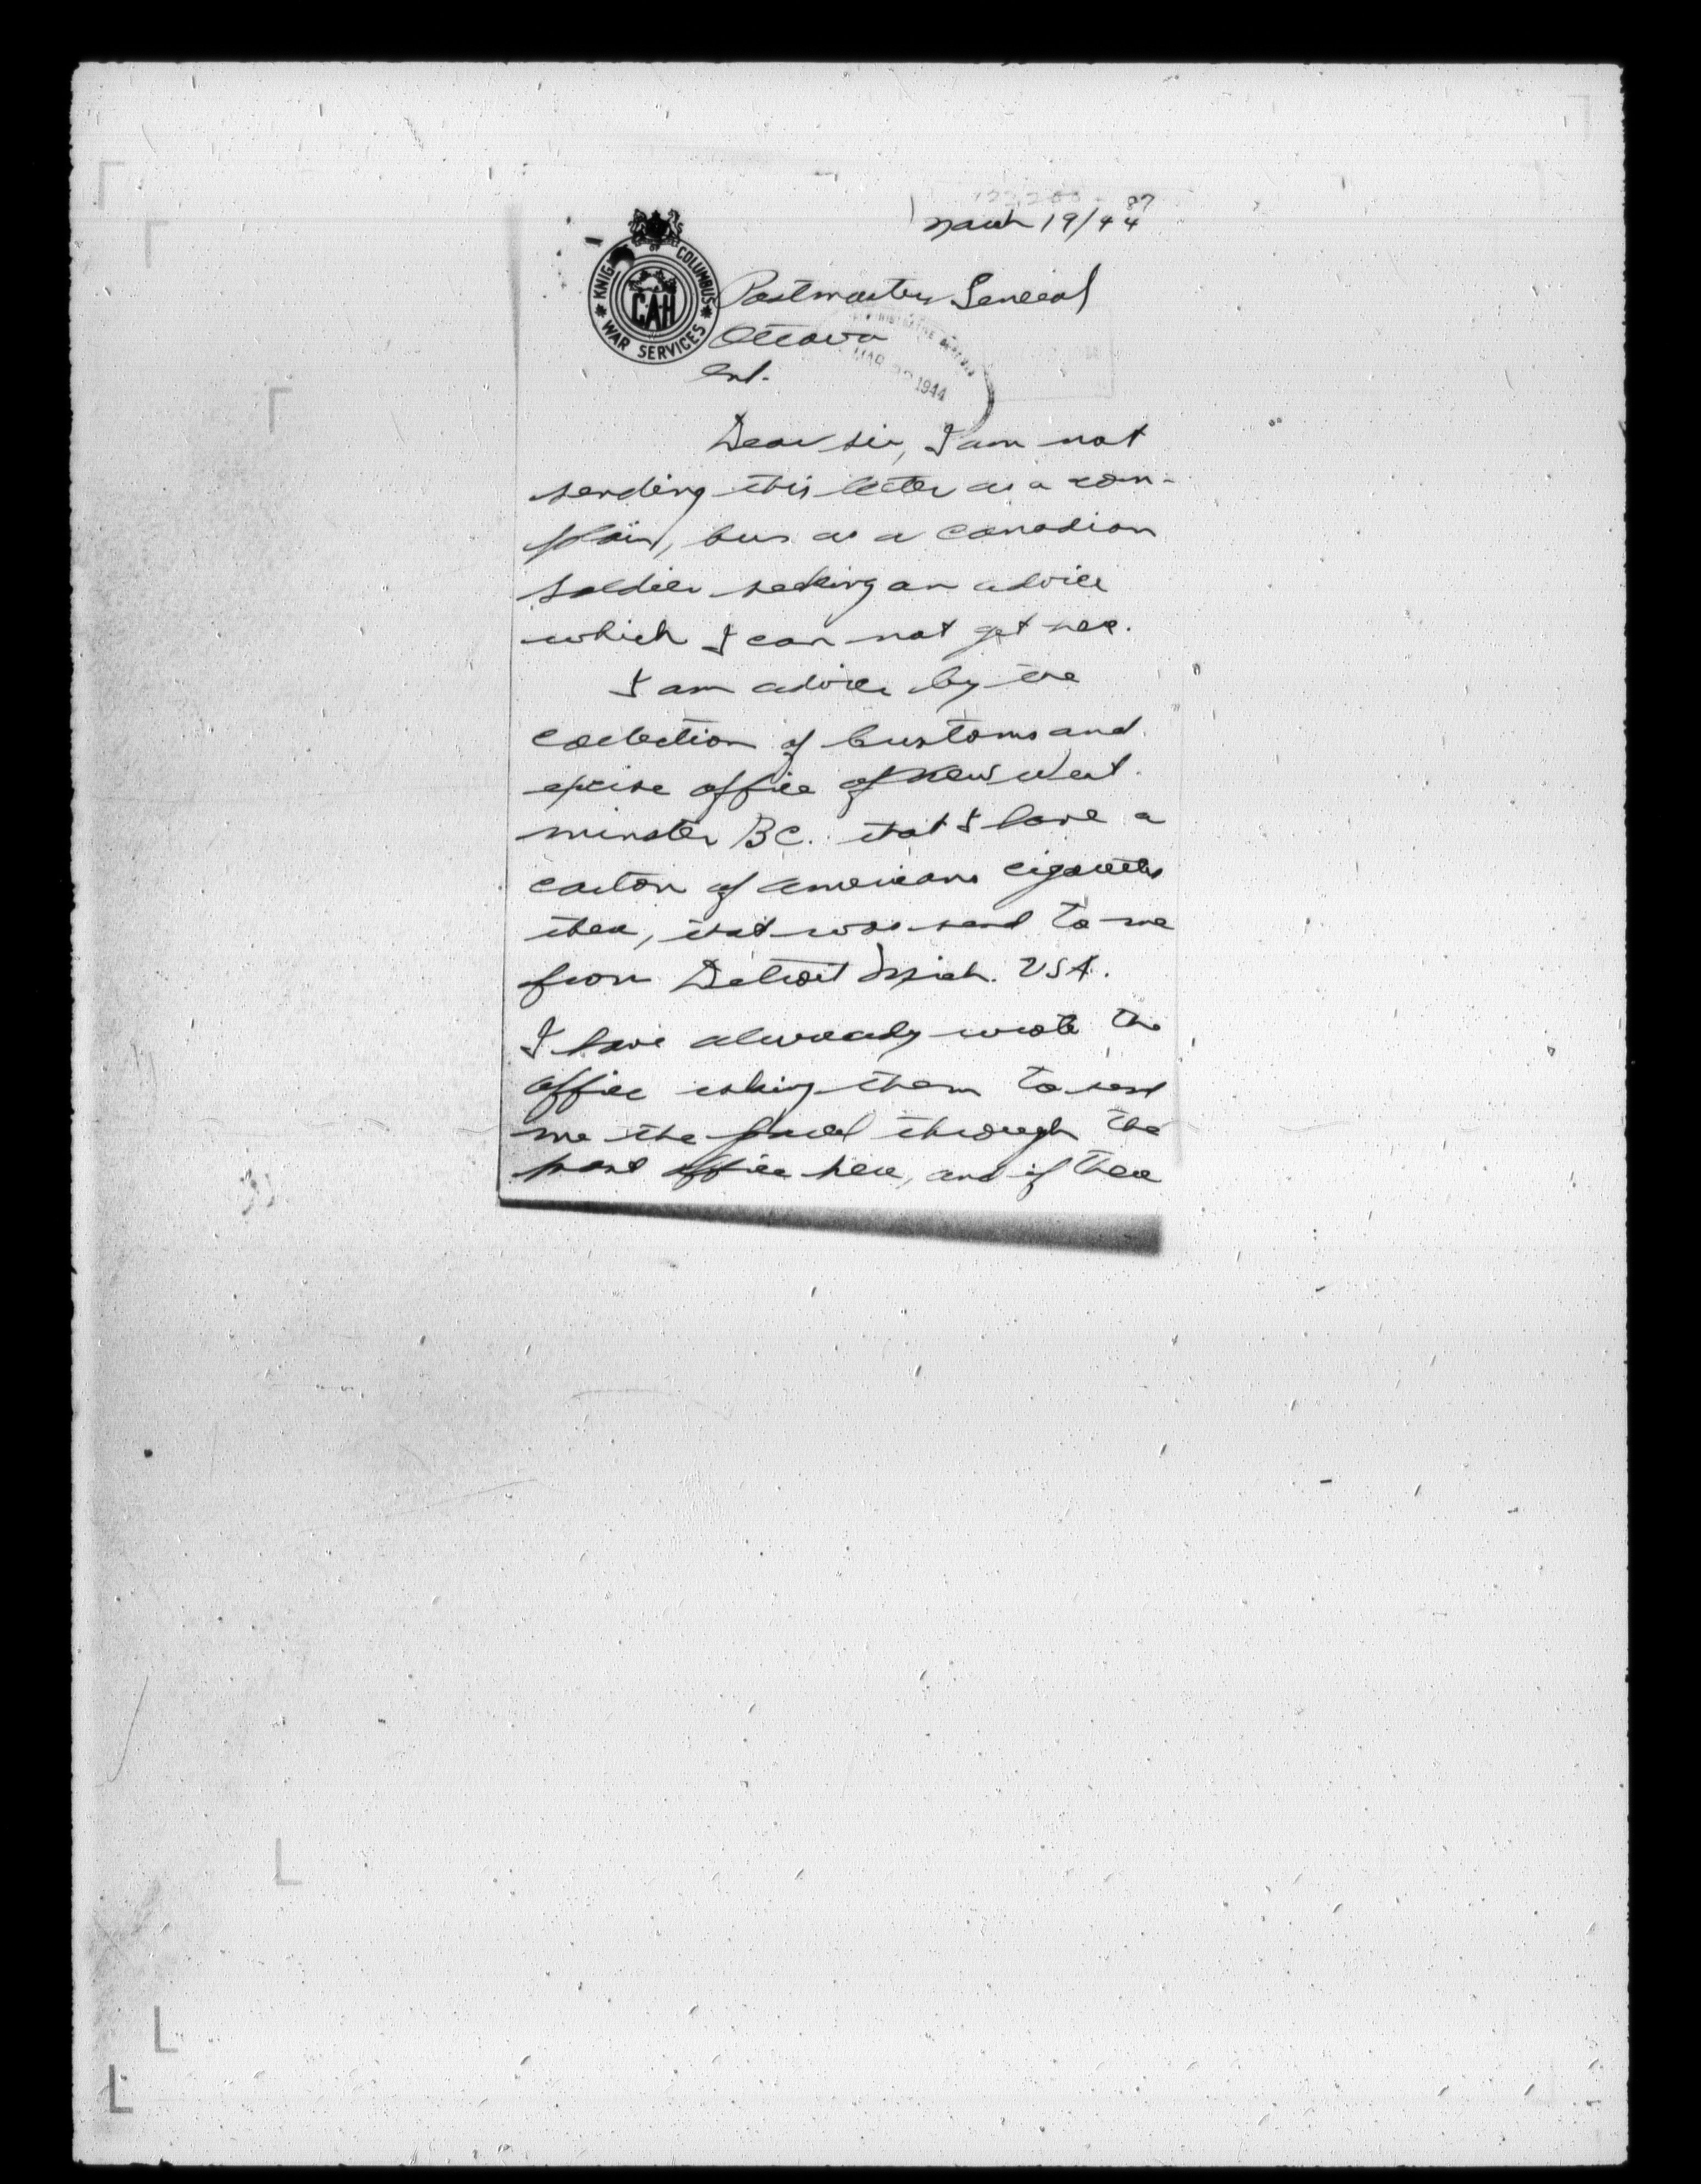 87
March 19/44
KNIGHTS OF COLUMBUS
CAH
WAR SERVICES
Postmaster General
Ottawa
Ont.
MAR 1944
Dear sir, I am not
sending this letter as a com-
plain, but as a Canadian
soldier seeking an advice
which I can not get here.
I am advice by the
collection of Customs and
excise office of New West-
minster BC. that I have a
carton of americans cigarettes
there, that was send to me
from Detroit Mich. USA.
I have alwready wrote the
office asking them to send
me the parcel through the
post office here, and if there